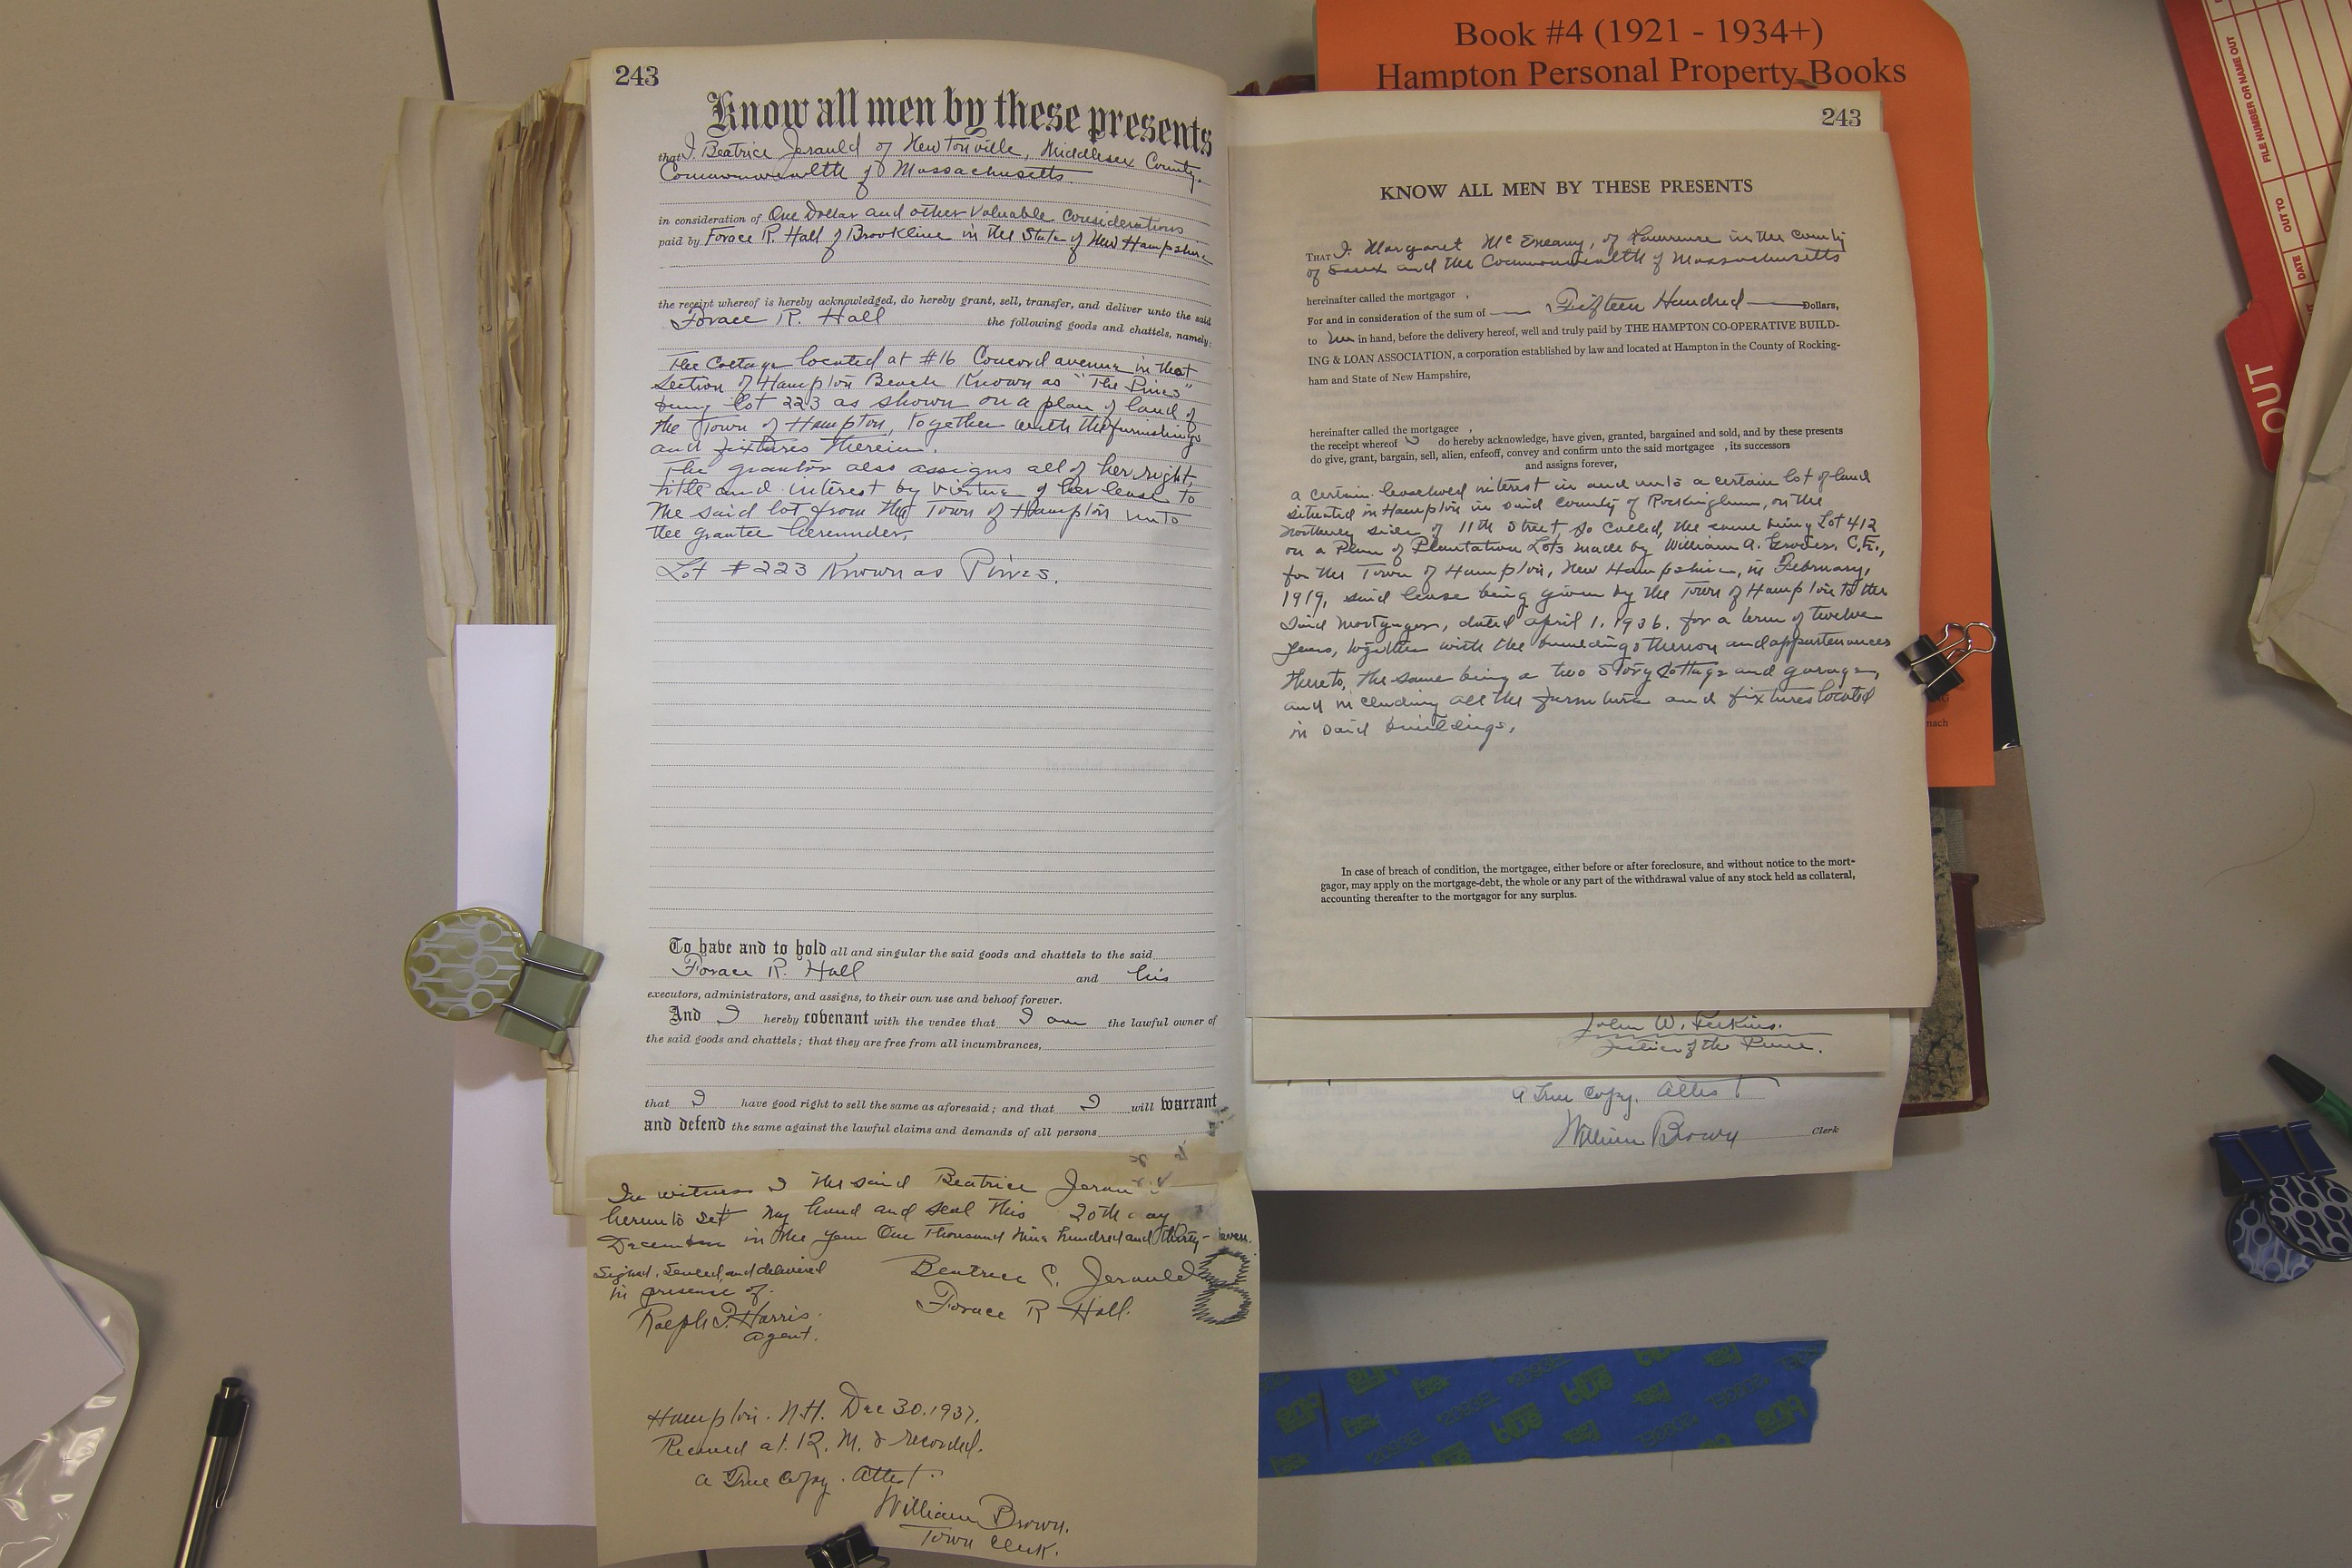 Book #4 (1921 - 1934+)
Hampton Personal Property Books
243
Know all men by these presents
that I, Beatrice Jerauld of Newtonville, Middlesex County,
Commonwealth of Massachusetts.
in consideration of One Dollar and other Valuable Considerations
paid by Forace R. Hall of Brookline in the State of New Hampshire
the receipt whereof is hereby acknowledged, do hereby grant, sell, transfer, and deliver unto the said
Forace R. Hall the following goods and chattels, namely:
The Cottage located at #16 Concord avenue in that
section of Hampton Beach Known as "The Pines"
being lot 223 as shown on a plan of land of
the Town of Hampton, together with the furnishings
and fixtures therein.
The grantor also assigns all of her right,
title and interest by virtue of her lease to
the said lot from the Town of Hampton unto
the grantee hereunder.
Lot #223 Known as Pines.
To have and to hold all and singular the said goods and chattels to the said
Forace R. Hall and his
executors, administrators, and assigns, to their own use and behoof forever.
And I hereby covenant with the vendee that I am the lawful owner of
the said goods and chattels; that they are free from all incumbrances,
that I have good right to sell the same as aforesaid; and that I will warrant
and defend the same against the lawful claims and demands of all persons
In witness I the said Beatrice Jerau
hereunto set my hand and seal this 20th day
December in the year One Thousand nine hundred and thirty-
Signed, Sealed, and delivered
in presence of.
Ralph Harris.
agent.
Beatrice C. Jerauld
Forace R Hall.
Hampton. N.H. Dec 30. 1937.
Received at 12. M. & recorded.
a True Copy. Attest.
William Brown.
Town Clerk.
243
KNOW ALL MEN BY THESE PRESENTS
THAT I, Margaret McEneany, of Lawrence in the County
of Essex and the Commonwealth of Massachusetts
hereinafter called the mortgagor ,
For and in consideration of the sum of Fifteen Hundred Dollars,
to me in hand, before the delivery hereof, well and truly paid by THE HAMPTON CO-OPERATIVE BUILD-
ING & LOAN ASSOCIATION, a corporation established by law and located at Hampton in the County of Rocking-
ham and State of New Hampshire,
hereinafter called the mortgagee ,
the receipt whereof I do hereby acknowledge, have given, granted, bargained and sold, and by these presents
do give, grant, bargain, sell, alien, enfeoff, convey and confirm unto the said mortgagee , its successors
and assigns forever,
a certain leasehold interest in and unto a certain lot of land
situated in Hampton in said County of Rockingham, on the
northerly side of 11th Street, so called, the same being Lot 412
on a Plan of Plantation Lots made by William A. Grover, C.E.,
for the Town of Hampton, New Hampshire, in February,
1919, said lease being given by the Town of Hampton to the
said Mortgagor, dated april 1, 1936. for a term of twelve
years, together with the buildings thereon and appurtenances
thereto, the same being a two Story Cottage and garage,
and including all the furniture and fixtures located
in said buildings.
In case of breach of condition, the mortgagee, either before or after foreclosure, and without notice to the mort-
gagor, may apply on the mortgage-debt, the whole or any part of the withdrawal value of any stock held as collateral,
accounting thereafter to the mortgagor for any surplus.
John W. Perkins.
Justice of the Peace.
a True Copy. Attest
William Brown Clerk
FILE NUMBER OR NAME OUT
OUT TO
DATE
OUT